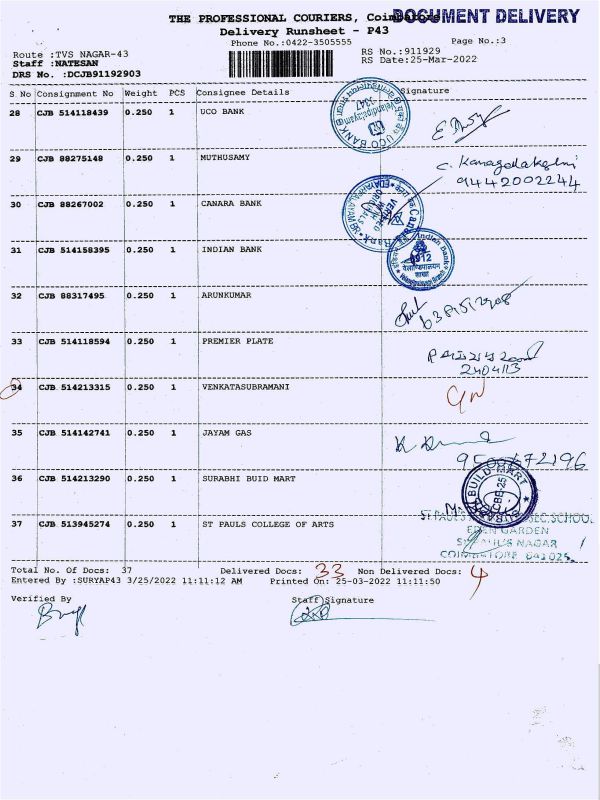 THE PROFESSIONAL COURIERS, Coimbatore.
DOCUMENT DELIVERY
Delivery Runsheet - P43
Phone No.:0422-3505555
Page No.:3
Route :TVS NAGAR-43
RS No.:911929
Staff :NATESAN
RS Date:25-Mar-2022
DRS No. :DCJB91192903
S No Consignment No Weight PCS Consignee Details Signature
28 CJB 514118439 0.250 1 UCO BANK
29 CJB 88275148 0.250 1 MUTHUSAMY
9442002244
30 CJB 88267002 0.250 1 CANARA BANK
31 CJB 514158395 0.250 1 INDIAN BANK
32 CJB 88317495 0.250 1 ARUNKUMAR
33 CJB 514118594 0.250 1 PREMIER PLATE
2404113
34 CJB 514213315 0.250 1 VENKATASUBRAMANI
35 CJB 514142741 0.250 1 JAYAM GAS
36 CJB 514213290 0.250 1 SURABHI BUID MART
37 CJB 513945274 0.250 1 ST PAULS COLLEGE OF ARTS
EDEN GARDEN
COIMBATORE 641025.
Total No. Of Docs: 37 Delivered Docs: 33 Non Delivered Docs: 4
Entered By :SURYAP43 3/25/2022 11:11:12 AM Printed On: 25-03-2022 11:11:50
Verified By Staff Signature